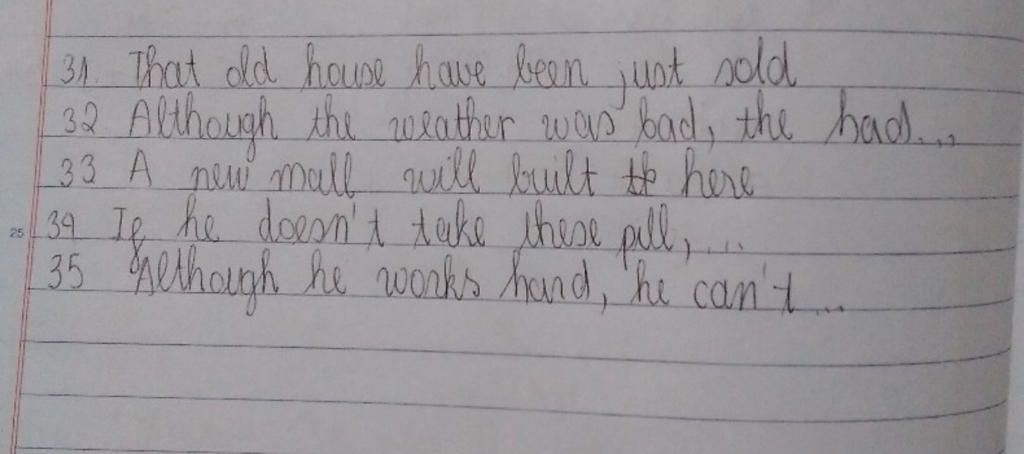 31. That old house have been just sold
32 Although the weather was bad, the had....
33 A new mall will built here
34 If he doesn't take these pill, ....
25
35 Although he works hard, he can't ...